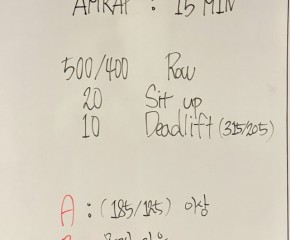 AMRAP : 15 MIN
500/400 Row
20 Sit up
10 Deadlift (315/205)
A : (185/125) 이상